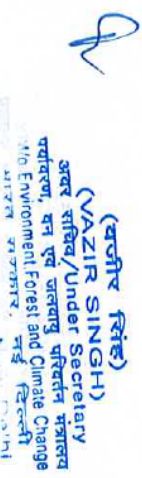 (वजीर सिंह)
(VAZIR SINGH)
अवर सचिव/Under Secretary
पर्यावरण, वन एवं जलवायु परिवर्तन मंत्रालय
M/o Environment, Forest and Climate Change
भारत सरकार, नई दिल्ली
Delhi